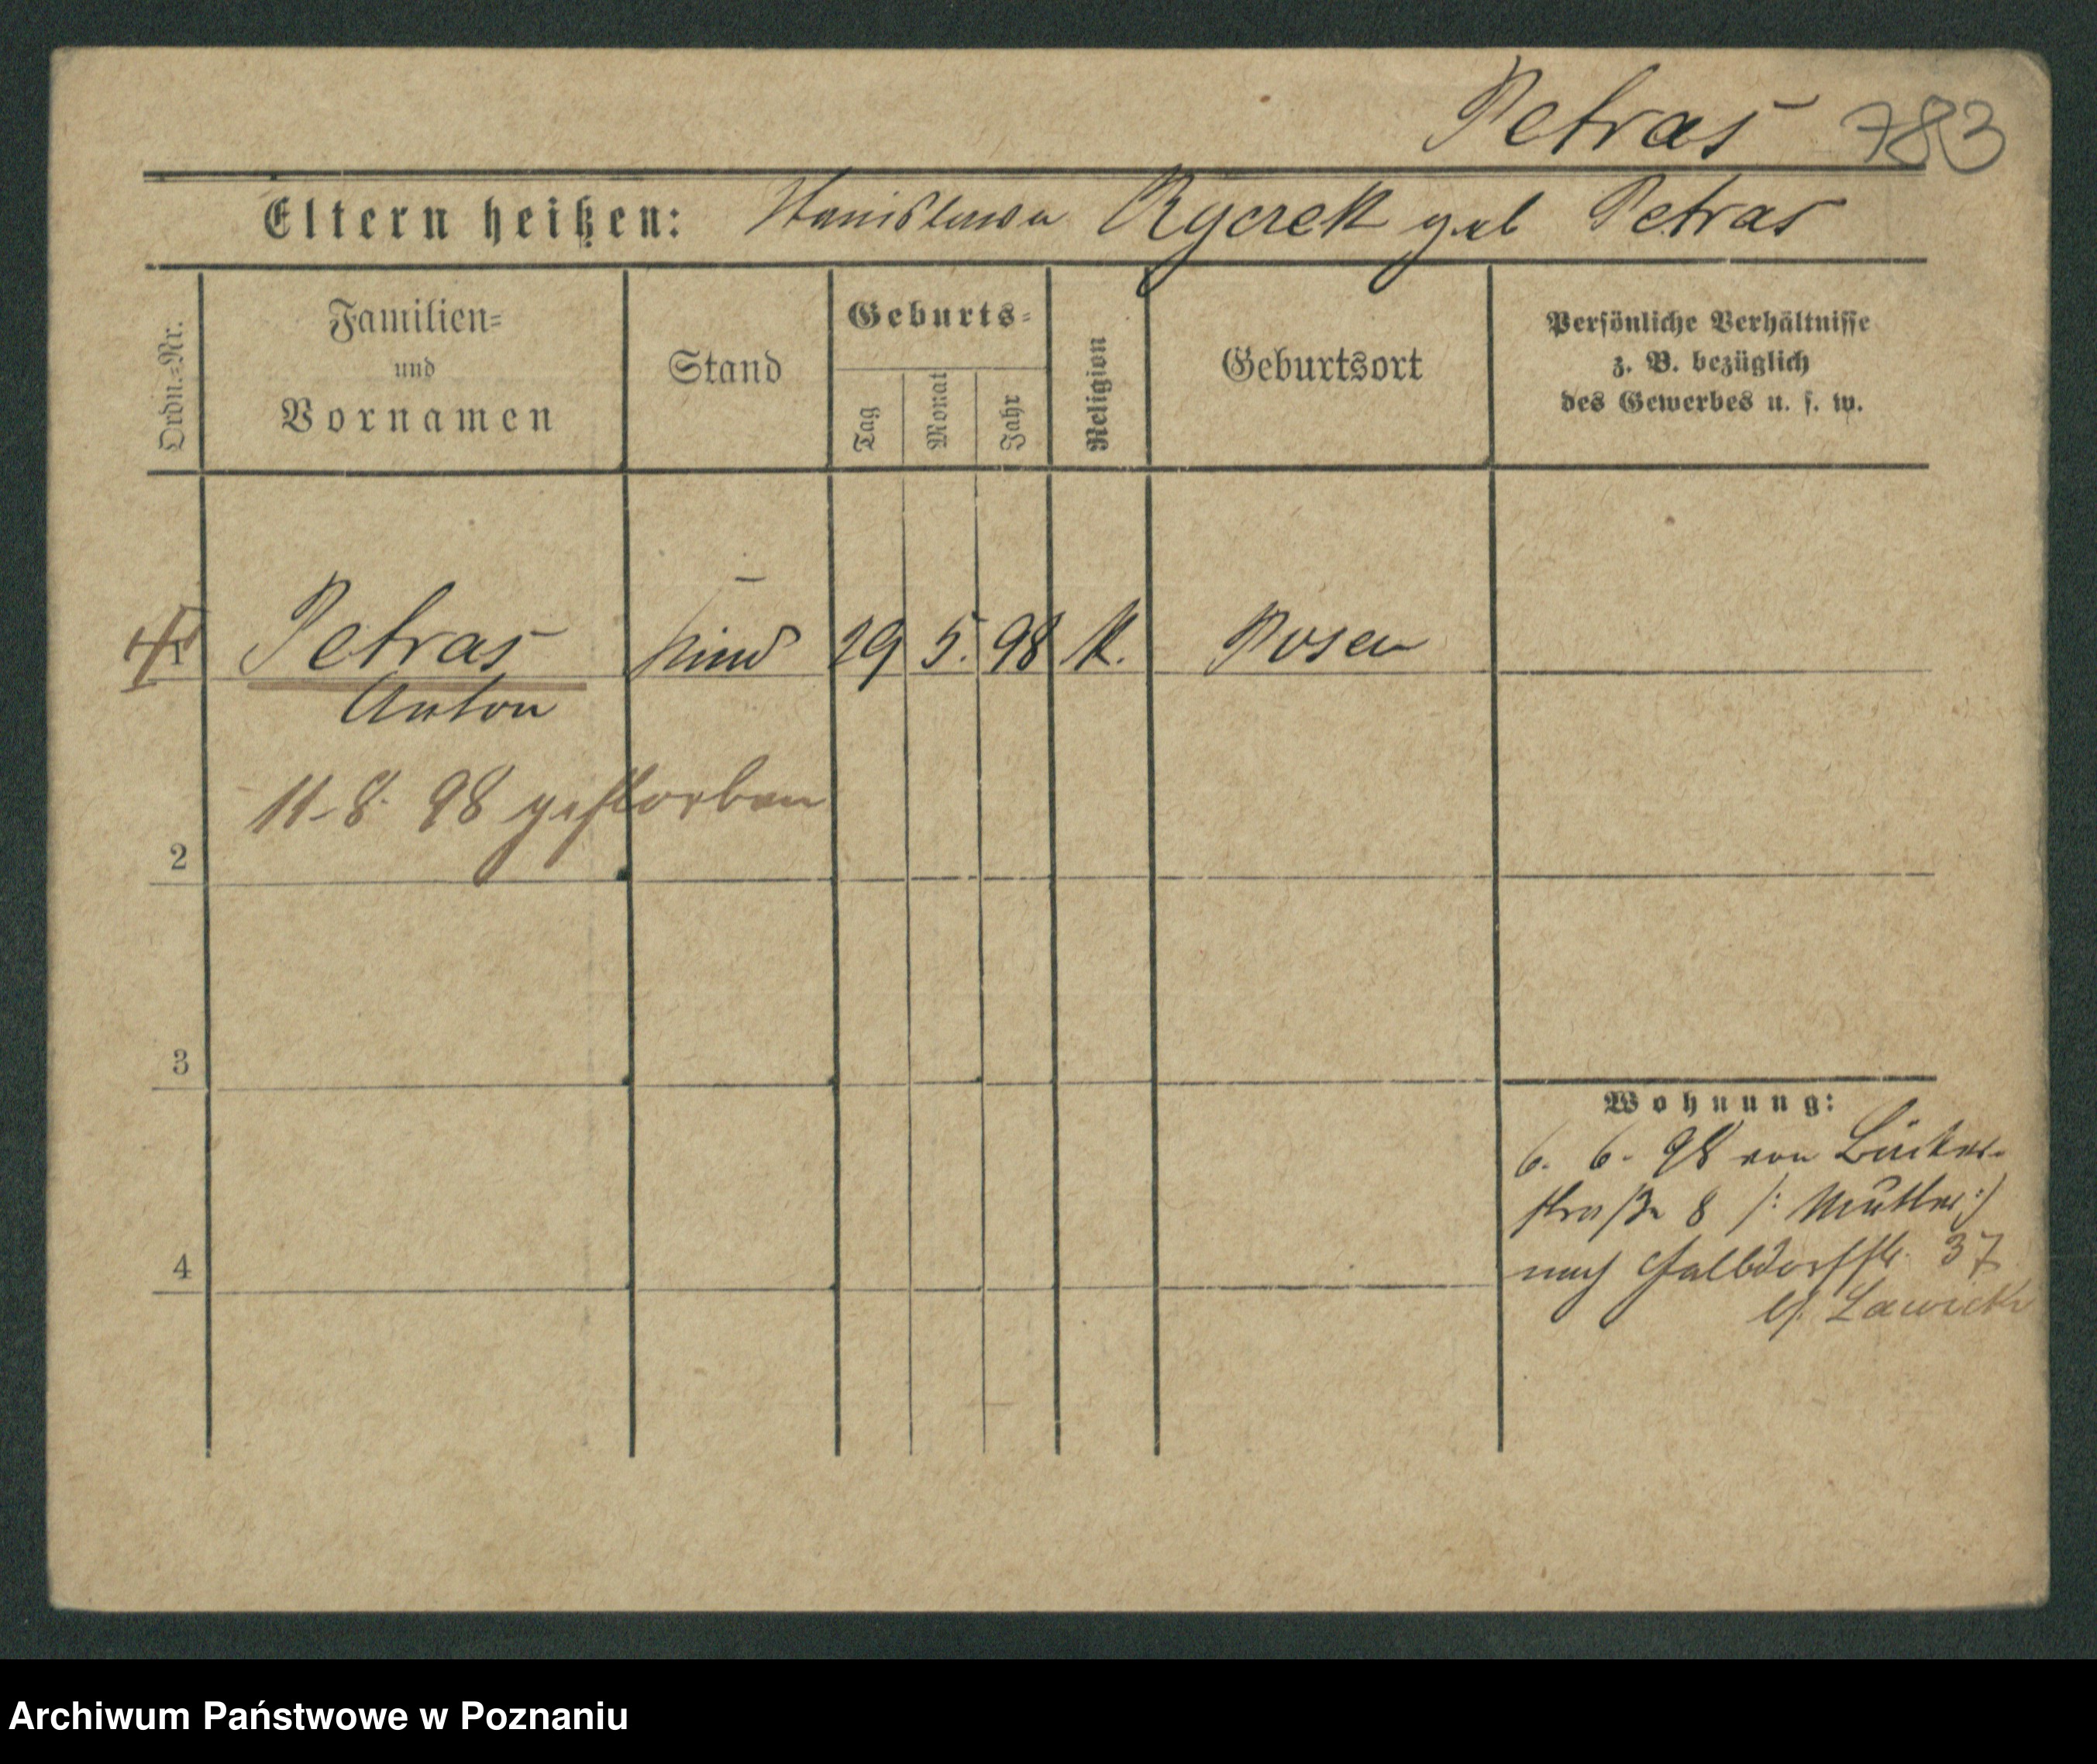 Petras 783
Eltern heißen: Stanislawa Rycrek geb Petras
Ordn.-Nr.
Familien-
und
Vornamen
Stand
Geburts-
Tag
Monat
Jahr
Religion
Geburtsort
Persönliche Verhältnisse
z. B. bezüglich
des Gewerbes u. s. w.
1 Petras Kind 29 5. 98 K. Posen
Anton
11-8. 98 gestorben
2
3
Wohnung:
6. 6. 98 von Bäcker-
straße 8 /: Mutter :/
4
nach Halbdorfstr. 37
b/.
Archiwum Państwowe w Poznaniu